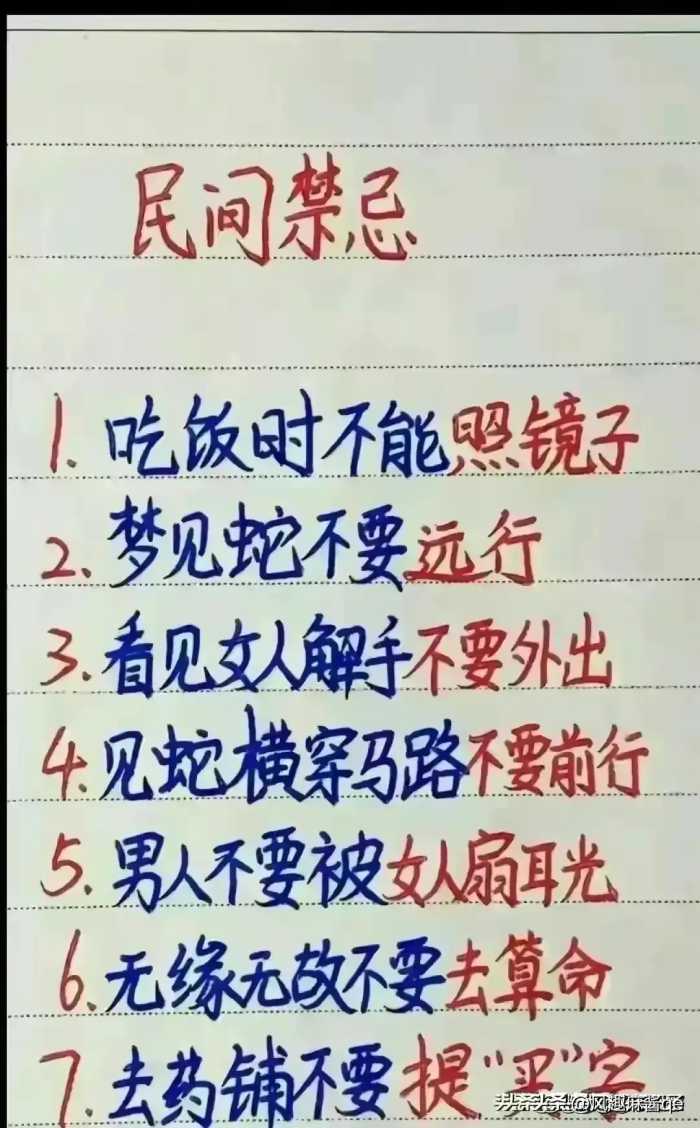 民间禁忌
1. 吃饭时不能照镜子
2. 梦见蛇不要远行
3. 看见女人解手不要外出
4. 见蛇横穿马路不要前行
5. 男人不要被女人扇耳光
6. 无缘无故不要去算命
7. 去药铺不要提“买”字
头条@风趣